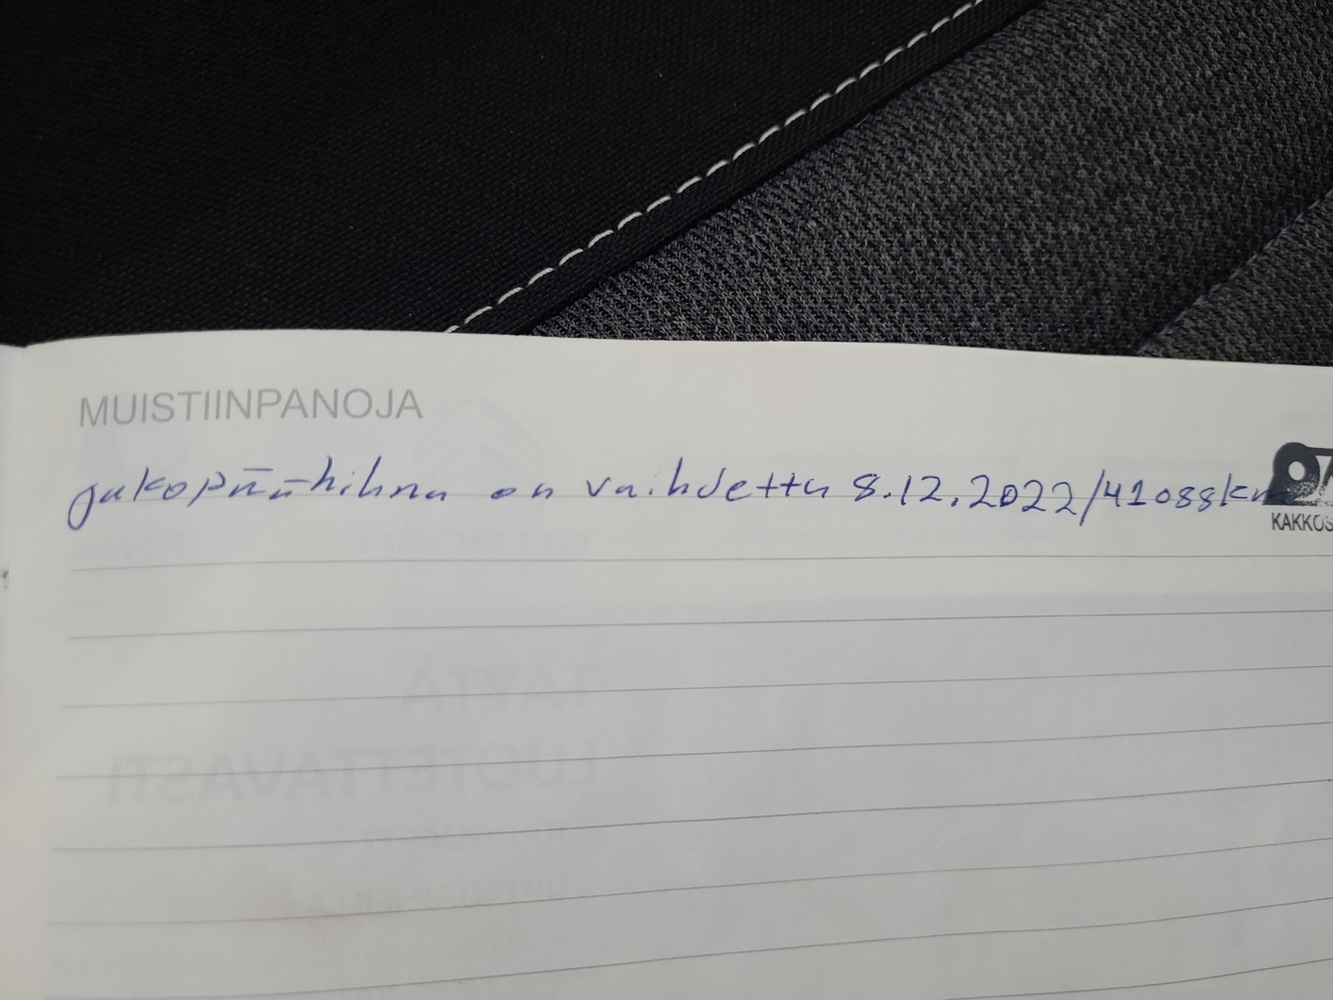 MUISTIINPANOJA
jakopäähihna on vaihdettu 8.12.2022/41088km
KAKKOS
TÄYTÄ
LUOTETTAVASTI